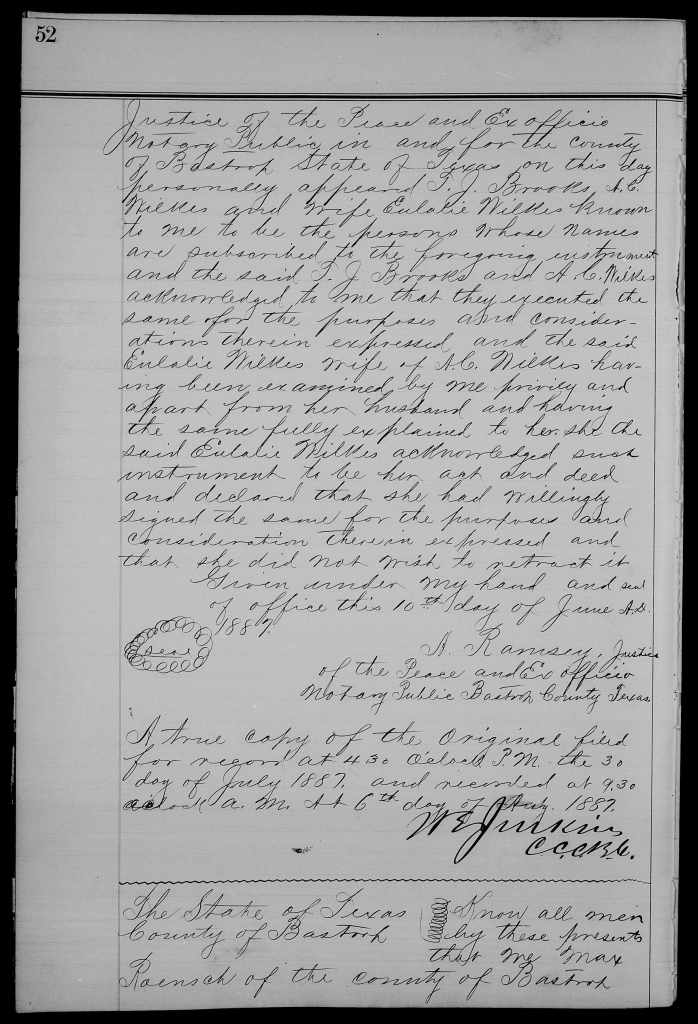 52
Justice of the Peace and Ex officio
Notary Public in and for the county
of Bastrop State of Texas on this day
personally appeard T. J. Brooks, A. C.
Wilkes and wife Eulalie Wilkes known
to me to be the persons whose names
are subscribed to the foregoing instrument
and the said T. J Brooks and A. C. Wilkes
acknowledged to me that they executed the
same for the purposes and consider-
ations therein expressed and the said
Eulalie Wilkes wife of A.C. Wilkes hav-
ing been examined by me privily and
apart from her husband and having
the same fully explained to her she the
said Eulalie Wilkes acknowledged such
instrument to be her act and deed
and declared that she had willingly
signed the same for the purposes and
consideration therein expressed and
that she did not wish to retract it
Given under my hand and seal
of office this 10th day of June A.D.
1887.
seal
A. Ramsey, Justice
of the Peace and Ex officio
Notary Public Bastrop County Texas
A true copy of the Original filed
for record at 4 30 Oclock P.M. the 30
day of July 1887. and recorded at 9.30
oclock a. m. 6th day of Aug. 1887.
W E Jenkins
C. C. C. B. C.
The State of Texas
County of Bastrop
Know all men
by these presents
that me Max
Roensch of the county of Bastrop